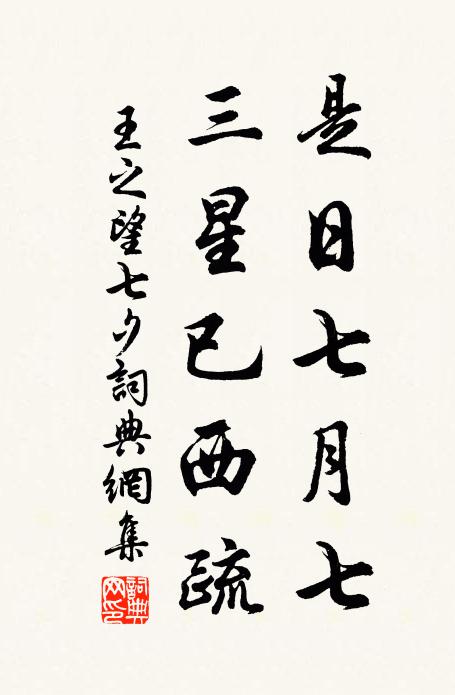 是日七月七
三星已西疏
王之望七夕詞典網集
詞典網印